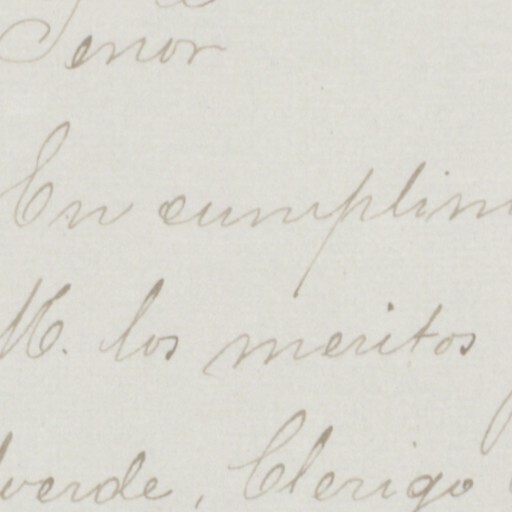 Señor
En cumplim
M. los meritos
verde, Clerigo